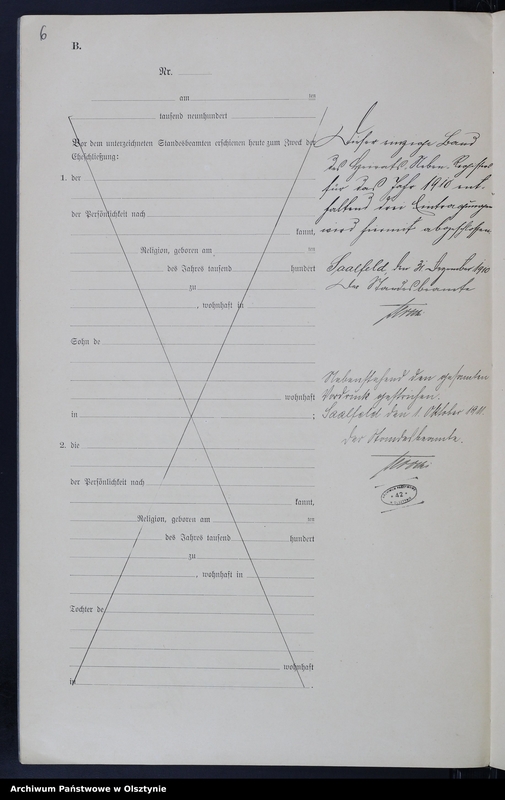 6
B.
Nr.
am ten
tausend neunhundert
Vor dem unterzeichneten Standesbeamten erschienen heute zum Zweck der
Eheschließung:
1. der
der Persönlichkeit nach
kannt,
Religion, geboren am ten
des Jahres tausend hundert
zu
, wohnhaft in
Sohn de
wohnhaft
in ;
2. die
der Persönlichkeit nach
kannt,
Religion, geboren am ten
des Jahres tausend hundert
zu
, wohnhaft in
Tochter de
wohnhaft
in .
Dieser einzige Band
des Heirats-Neben-Registers
für das Jahr 1910 ent-
haltend drei Eintragungen
wird hiermit abgeschlossen
Saalfeld, den 31. Dezember 1910
Der Standesbeamte
Nebenstehend den gesamten
Vordruck gestrichen.
Saalfeld den 1. Oktober 1911.
Der Standesbeamte.
42
Archiwum Państwowe w Olsztynie